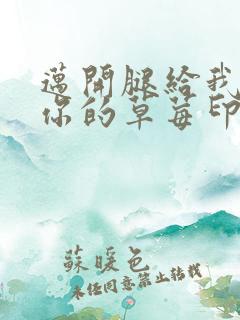 邁開腿給我
你的草莓印
蘇暖色
未经同意禁止转载